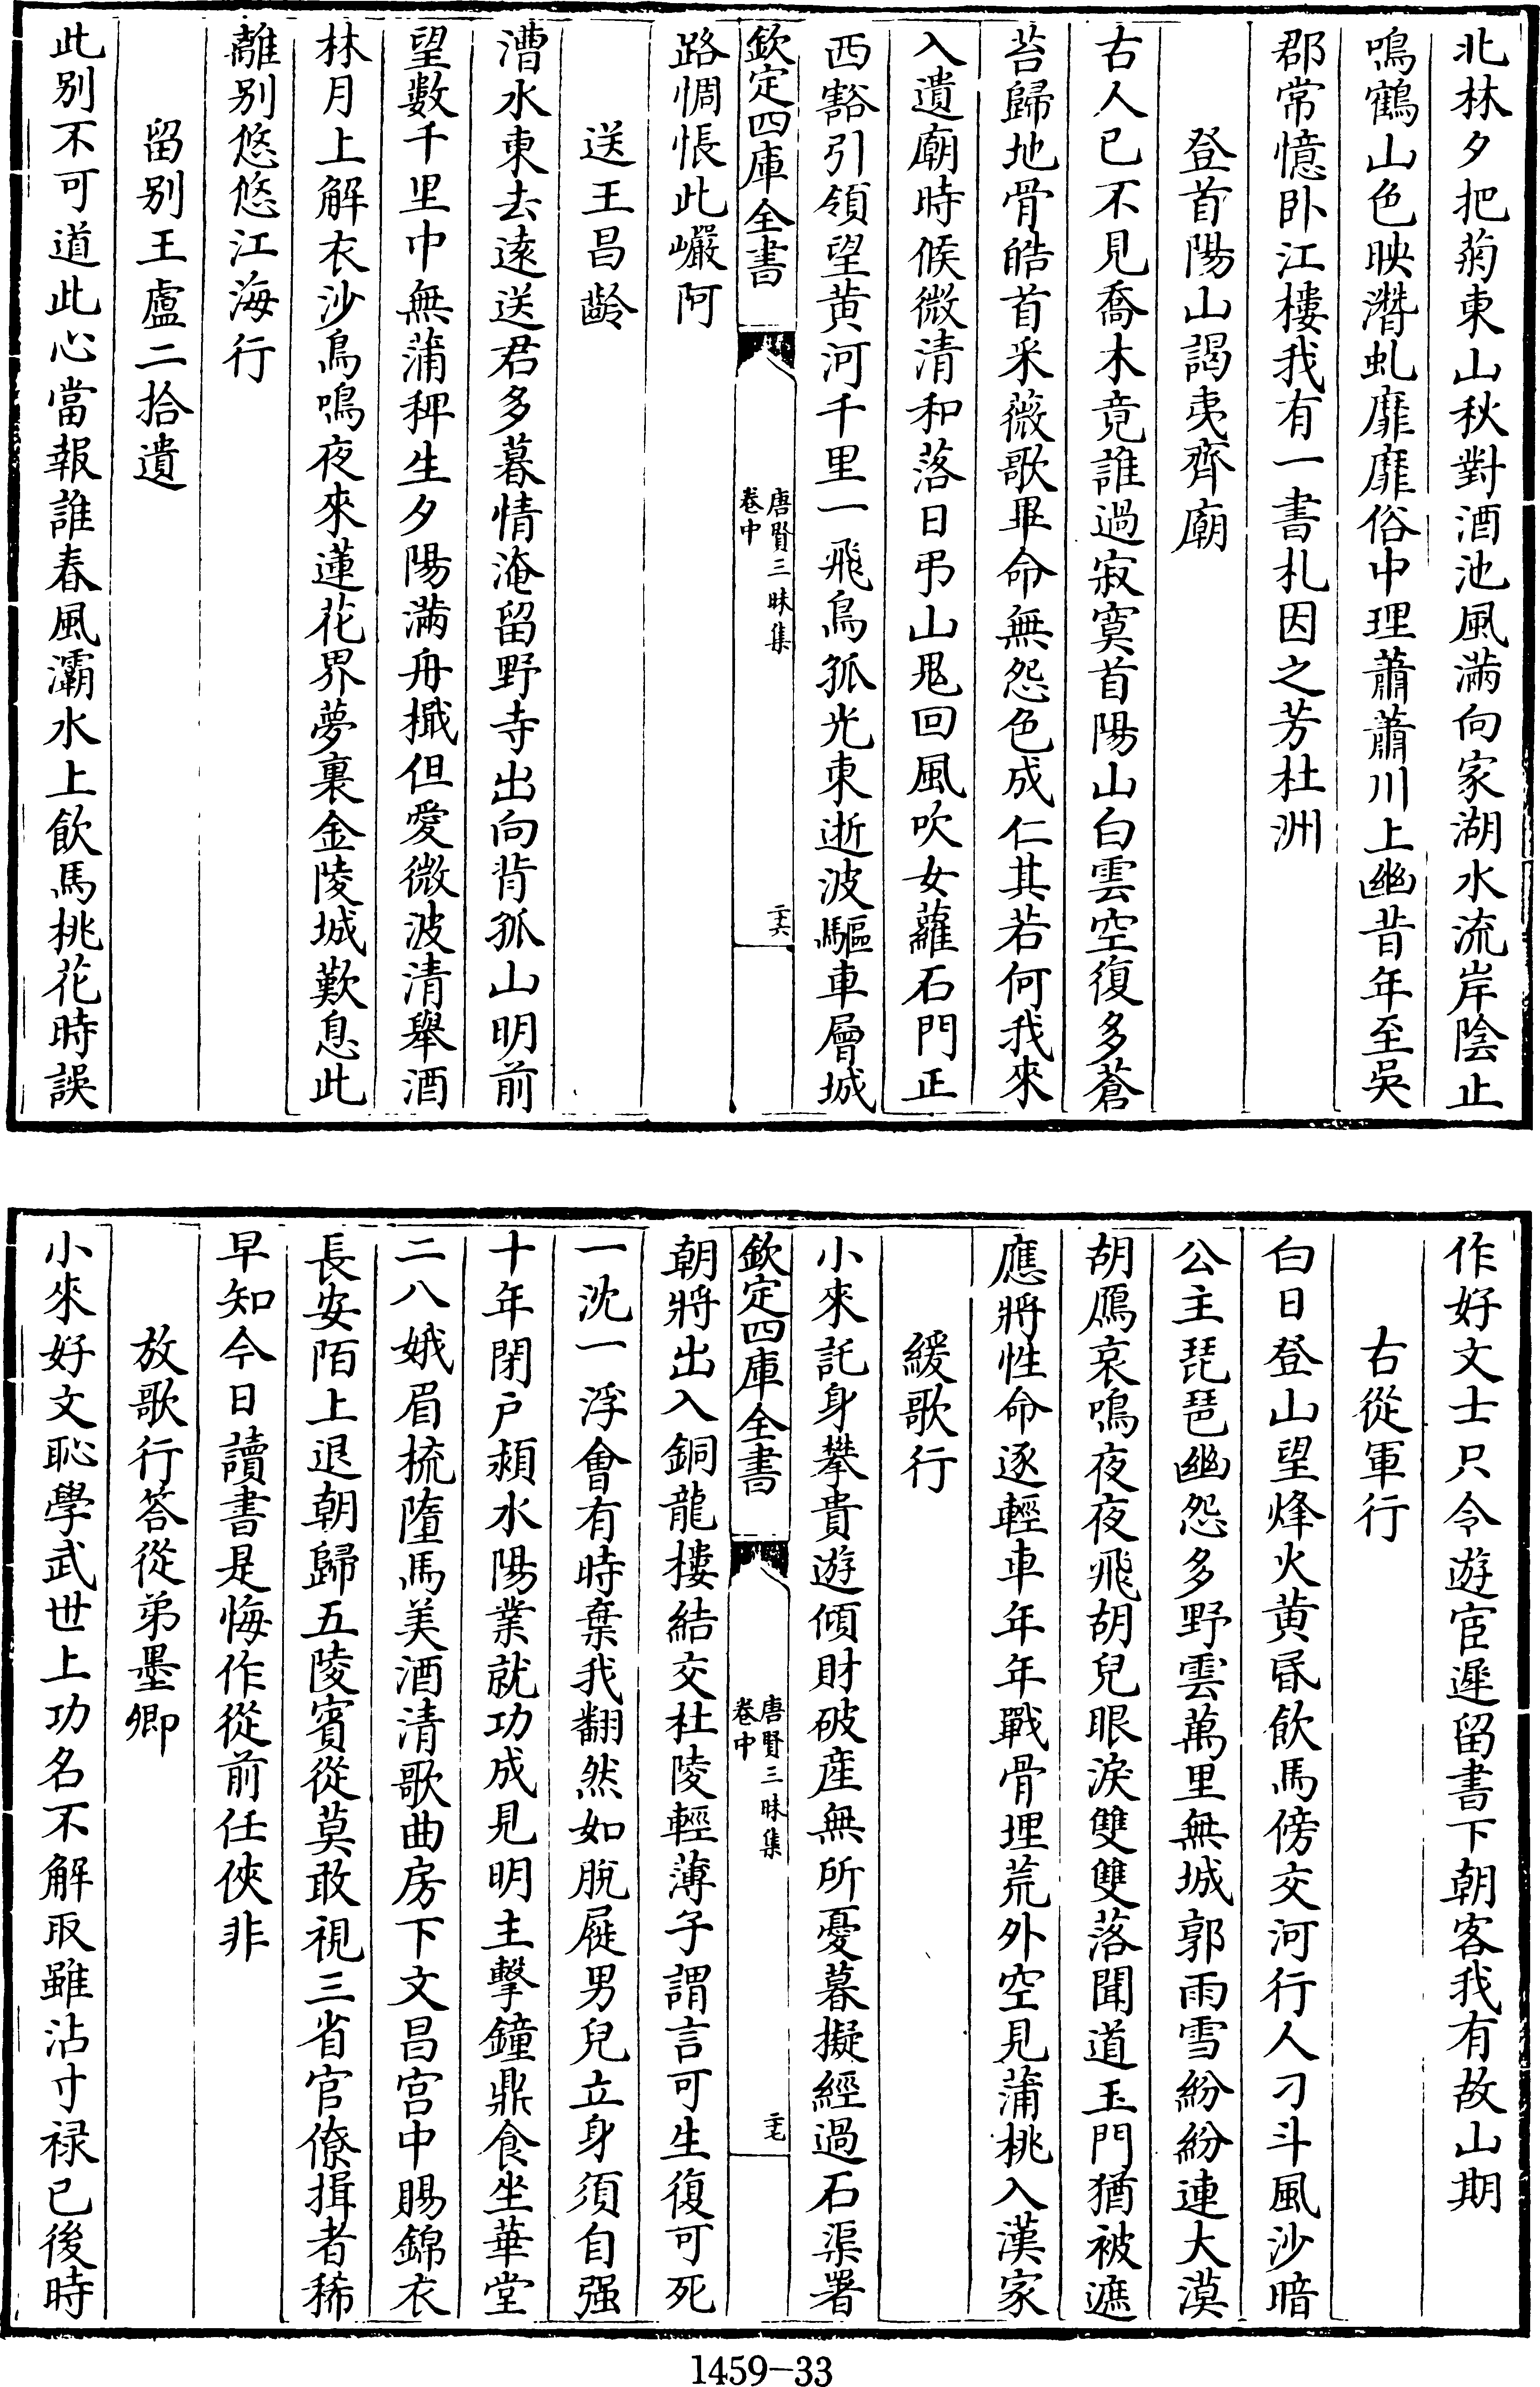 北林夕把菊東山秋對酒池風滿向家湖水流岸陰止
鳴鶴山色映潛虬靡靡俗中理蕭蕭川上幽昔年至吳
郡常憶卧江樓我有一書札因之芳杜洲
登首陽山謁夷齊廟
古人已不見喬木竟誰過寂寞首陽山白雲空復多蒼
苔歸地骨皓首采薇歌畢命無怨色成仁其若何我來
入遺廟時候微清和落日弔山鬼回風吹女蘿石門正
西豁引領望黄河千里一飛鳥孤光東逝波驅車層城
路惆悵此巗阿
欽定四庫全書
唐賢三昧集
卷中
二六
送王昌齡
漕水東去逺送君多暮情淹留野寺出向背孤山明前
望數千里中無蒲稗生夕陽滿舟檝但愛微波清舉酒
林月上解衣沙鳥鳴夜來蓮花界夢裏金陵城歎息此
離别悠悠江海行
留别王盧二拾遺
此别不可道此心當報誰春風灞水上飲馬桃花時誤
作好文士只令遊宦遲留書下朝客我有故山期
古從軍行
白日登山望烽火黄昏飲馬傍交河行人刁斗風沙暗
公主琵琶幽怨多野雲萬里無城郭雨雪紛紛連大漠
胡鴈哀鳴夜夜飛胡兒眼淚雙雙落聞道玉門猶被遮
應將性命逐輕車年年戰骨埋荒外空見蒲桃入漢家
緩歌行
小來託身攀貴遊傾財破産無所憂暮擬經過石渠署
欽定四庫全書
唐賢三昧集
卷中
二七
朝將出入銅龍樓結交杜陵輕薄子謂言可生復可死
一沈一浮會有時棄我翻然如脱屣男兒立身須自强
十年閉户潁水陽業就功成見明主擊鐘鼎食坐華堂
二八娥眉梳墮馬美酒清歌曲房下文昌宫中賜錦衣
長安陌上退朝歸五陵賓從莫敢視三省官僚揖者稀
早知今日讀書是悔作從前任俠非
放歌行答從弟墨卿
小來好文恥學武世上功名不解取雖沾寸禄已後時
1459-33